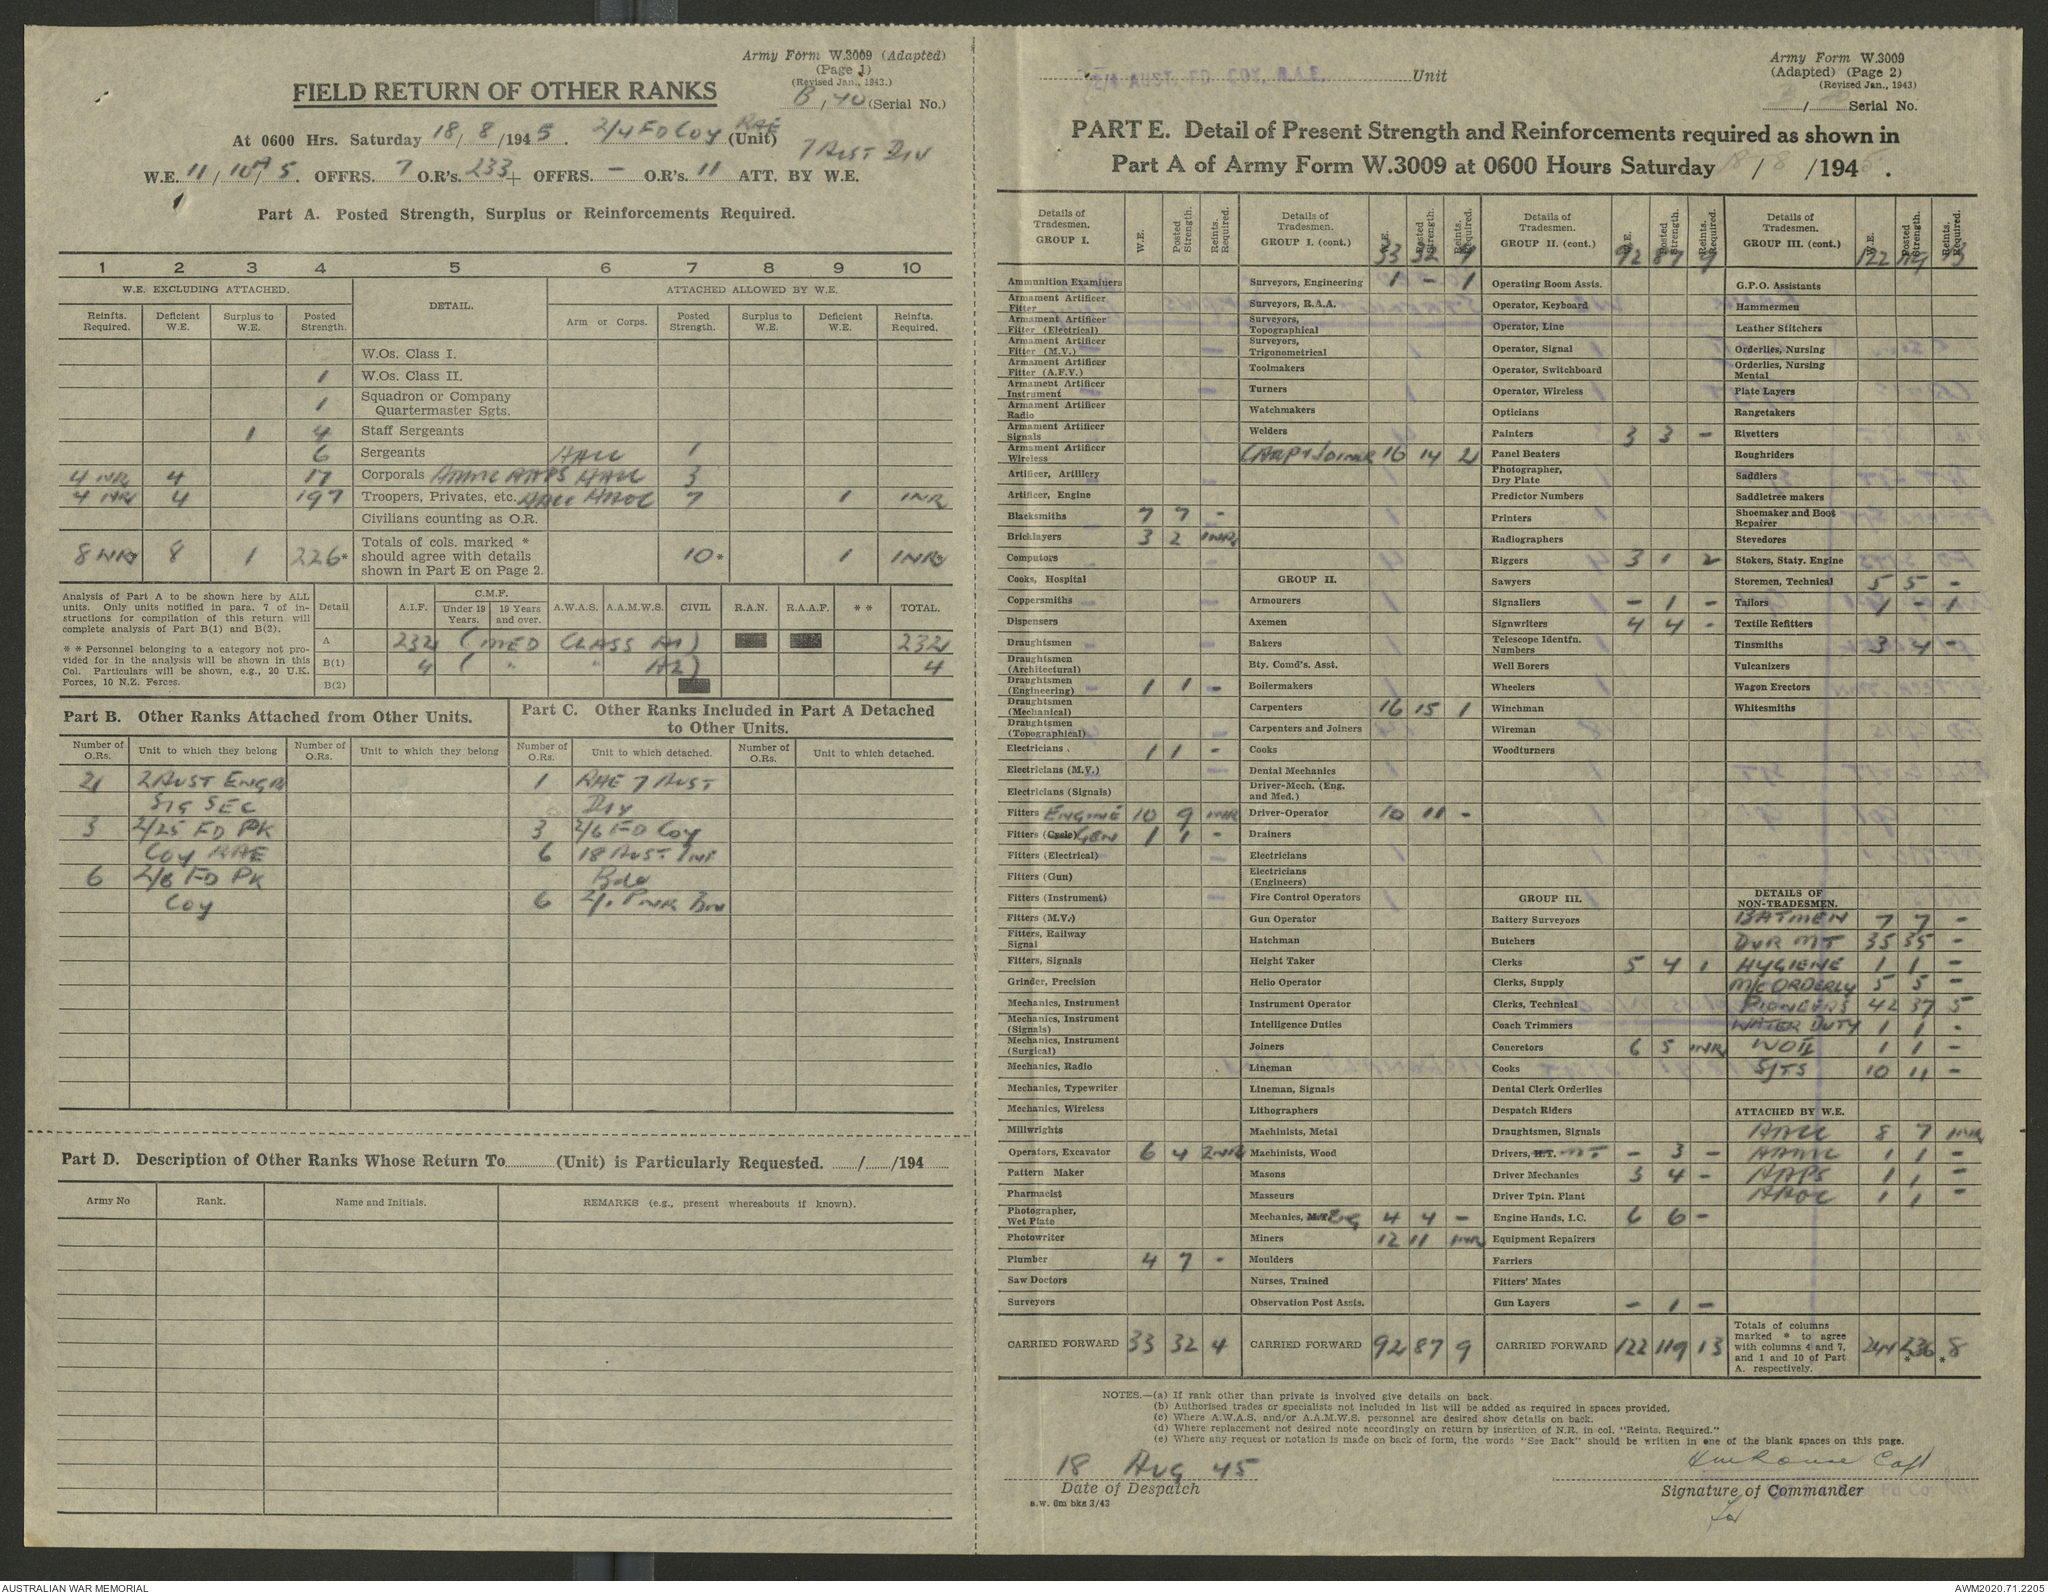 Army Form W.3009 (Adapted)
(Page 1)
(Revised Jan., 1943.)
FIELD RETURN OF OTHER RANKS
B / 40 (Serial No.)
At 0600 Hrs. Saturday 18 / 8 /1945. 2/4 FD COY RAE (Unit)
7 AUST DIV
W.E. 11 / 10A / 5. OFFRS. 7 O.R's. 233 + OFFRS. - O.R's. 11 ATT. BY W.E.
1
Part A. Posted Strength, Surplus or Reinforcements Required.
1 2 3 4 5 6 7 8 9 10
W.E. EXCLUDING ATTACHED. DETAIL. ATTACHED ALLOWED BY W.E.
Reinfts. Required. Deficient W.E. Surplus to W.E. Posted Strength. Arm or Corps. Posted Strength. Surplus to W.E. Deficient W.E. Reinfts. Required.
W.Os. Class I.
1 W.Os. Class II.
1 Squadron or Company Quartermaster Sgts.
1 4 Staff Sergeants
6 Sergeants AACC 1
4 NR 4 17 Corporals AAMC AAPS AACC 3
4 NR 4 197 Troopers, Privates, etc. AACC AAOC 7 1 1NR
Civilians counting as O.R.
8 NR* 8 1 226* Totals of cols. marked * should agree with details shown in Part E on Page 2. 10* 1 1NR*
Analysis of Part A to be shown here by ALL units. Only units notified in para. 7 of instructions for compilation of this return will complete analysis of Part B(1) and B(2).
* * Personnel belonging to a category not provided for in the analysis will be shown in this Col. Particulars will be shown, e.g., 20 U.K. Forces, 10 N.Z. Forces.
Detail A.I.F. C.M.F. Under 19 Years. 19 Years and over. A.W.A.S. A.A.M.W.S. CIVIL R.A.N. R.A.A.F. * * TOTAL.
A 232 (MED CLASS A1) 232
B(1) 4 ( " " A2) 4
B(2)
Part B. Other Ranks Attached from Other Units.
Part C. Other Ranks Included in Part A Detached to Other Units.
Number of O.Rs. Unit to which they belong Number of O.Rs. Unit to which they belong Number of O.Rs. Unit to which detached. Number of O.Rs. Unit to which detached.
21 2 AUST ENGR 1 RAE 7 AUST
SIG SEC DIV
3 2/25 FD PK 3 2/6 FD COY
COY RAE 6 18 AUST INF
6 2/8 FD PK Bde
COY 6 2/1 PNR BN
Part D. Description of Other Ranks Whose Return To.......... (Unit) is Particularly Requested. ...../...../194.....
Army No Rank. Name and Initials. REMARKS (e.g., present whereabouts if known).
Unit
Army Form W.3009
(Adapted) (Page 2)
(Revised Jan., 1943)
/ Serial No.
PART E. Detail of Present Strength and Reinforcements required as shown in
Part A of Army Form W.3009 at 0600 Hours Saturday 18 / 8 /1945.
Details of Tradesmen. GROUP I. W.E. Posted Strength. Reints. Required.
Ammunition Examiners
Armament Artificer Fitter
Armament Artificer Fitter (Electrical)
Armament Artificer Fitter (M.V.)
Armament Artificer Fitter (A.F.V.)
Armament Artificer Instrument
Armament Artificer Radio
Armament Artificer Signals
Armament Artificer Wireless
Artificer, Artillery
Artificer, Engine
Blacksmiths 7 7 -
Bricklayers 3 2 1NR
Computors
Cooks, Hospital
Coppersmiths
Dispensers
Draughtsmen
Draughtsmen (Architectural)
Draughtsmen (Engineering) 1 1 -
Draughtsmen (Mechanical)
Draughtsmen (Topographical)
Electricians 1 1 -
Electricians (M.V.)
Electricians (Signals)
Fitters ENGINE 10 9 1NR
Fitters (Cycle) GEN 1 1 -
Fitters (Electrical)
Fitters (Gun)
Fitters (Instrument)
Fitters (M.V.)
Fitters, Railway Signal
Fitters, Signals
Grinder, Precision
Mechanics, Instrument
Mechanics, Instrument (Signals)
Mechanics, Instrument (Surgical)
Mechanics, Radio
Mechanics, Typewriter
Mechanics, Wireless
Millwrights
Operators, Excavator 6 4 2NR
Pattern Maker
Pharmacist
Photographer, Wet Plate
Photowriter
Plumber 4 7 -
Saw Doctors
Surveyors
CARRIED FORWARD 33 32 4
Details of Tradesmen. GROUP I. (cont.) W.E. Posted Strength. Reints. Required.
33 32 4
Surveyors, Engineering 1 - 1
Surveyors, R.A.A.
Surveyors, Topographical
Surveyors, Trigonometrical
Toolmakers
Turners
Watchmakers
Welders
CARP & JOINER 16 14 2
GROUP II.
Armourers
Axemen
Bakers
Bty. Comd's. Asst.
Boilermakers
Carpenters 16 15 1
Carpenters and Joiners
Cooks
Dental Mechanics
Driver-Mech. (Eng. and Med.)
Driver-Operator 10 11 -
Drainers
Electricians
Electricians (Engineers)
Fire Control Operators
Gun Operator
Hatchman
Height Taker
Helio Operator
Instrument Operator
Intelligence Duties
Joiners
Lineman
Lineman, Signals
Lithographers
Machinists, Metal
Machinists, Wood
Masons
Masseurs
Mechanics, M.T. EG 4 4 -
Miners 12 11 1NR
Moulders
Nurses, Trained
Observation Post Assts.
CARRIED FORWARD 92 87 9
Details of Tradesmen. GROUP II. (cont.) W.E. Posted Strength. Reints. Required.
92 87 9
Operating Room Assts.
Operator, Keyboard
Operator, Line
Operator, Signal
Operator, Switchboard
Operator, Wireless
Opticians
Painters 3 3 -
Panel Beaters
Photographer, Dry Plate
Predictor Numbers
Printers
Radiographers
Riggers 3 1 2
Sawyers
Signallers - 1 -
Signwriters 4 4 -
Telescope Identfn. Numbers
Well Borers
Wheelers
Winchman
Wireman
Woodturners
GROUP III.
Battery Surveyors
Butchers
Clerks 5 4 1
Clerks, Supply
Clerks, Technical
Coach Trimmers
Concretors 6 5 1NR
Cooks
Dental Clerk Orderlies
Despatch Riders
Draughtsmen, Signals
Drivers, H.T. MT - 3 -
Driver Mechanics 3 4 -
Driver Tptn. Plant
Engine Hands, I.C. 6 6 -
Equipment Repairers
Farriers
Fitters' Mates
Gun Layers - 1 -
CARRIED FORWARD 122 119 13
Details of Tradesmen. GROUP III. (cont.) W.E. Posted Strength. Reints. Required.
122 119 13
G.P.O. Assistants
Hammermen
Leather Stitchers
Orderlies, Nursing
Orderlies, Nursing Mental
Plate Layers
Rangetakers
Rivetters
Roughriders
Saddlers
Saddletree makers
Shoemaker and Boot Repairer
Stevedores
Stokers, Staty. Engine
Storemen, Technical 5 5 -
Tailors 1 - 1
Textile Refitters
Tinsmiths 3 4 -
Vulcanizers
Wagon Erectors
Whitesmiths
DETAILS OF NON-TRADESMEN.
BATMEN 7 7 -
DVR MT 35 35 -
HYGIENE 1 1 -
M/C ORDERLY 5 5 -
PIONEERS 42 37 5
WATER DUTY 1 1 -
WOII 1 1 -
SJTS 10 11 -
ATTACHED BY W.E.
AACC 8 7 1NR
AAMC 1 1 -
AAPS 1 1 -
AAOC 1 1 -
Totals of columns marked * to agree with columns 4 and 7, and 1 and 10 of Part A. respectively. 244 236* *8
NOTES.—(a) If rank other than private is involved give details on back.
(b) Authorised trades or specialists not included in list will be added as required in spaces provided.
(c) Where A.W.A.S. and/or A.A.M.W.S. personnel are desired show details on back.
(d) Where replacement not desired note accordingly on return by insertion of N.R. in col. "Reints. Required."
(e) Where any request or notation is made on back of form, the words "See Back" should be written in one of the blank spaces on this page.
18 Aug 45
Date of Despatch
Capt
Signature of Commander
for
a.w. 6m bks 3/43
AUSTRALIAN WAR MEMORIAL
AWM2020.71.2205